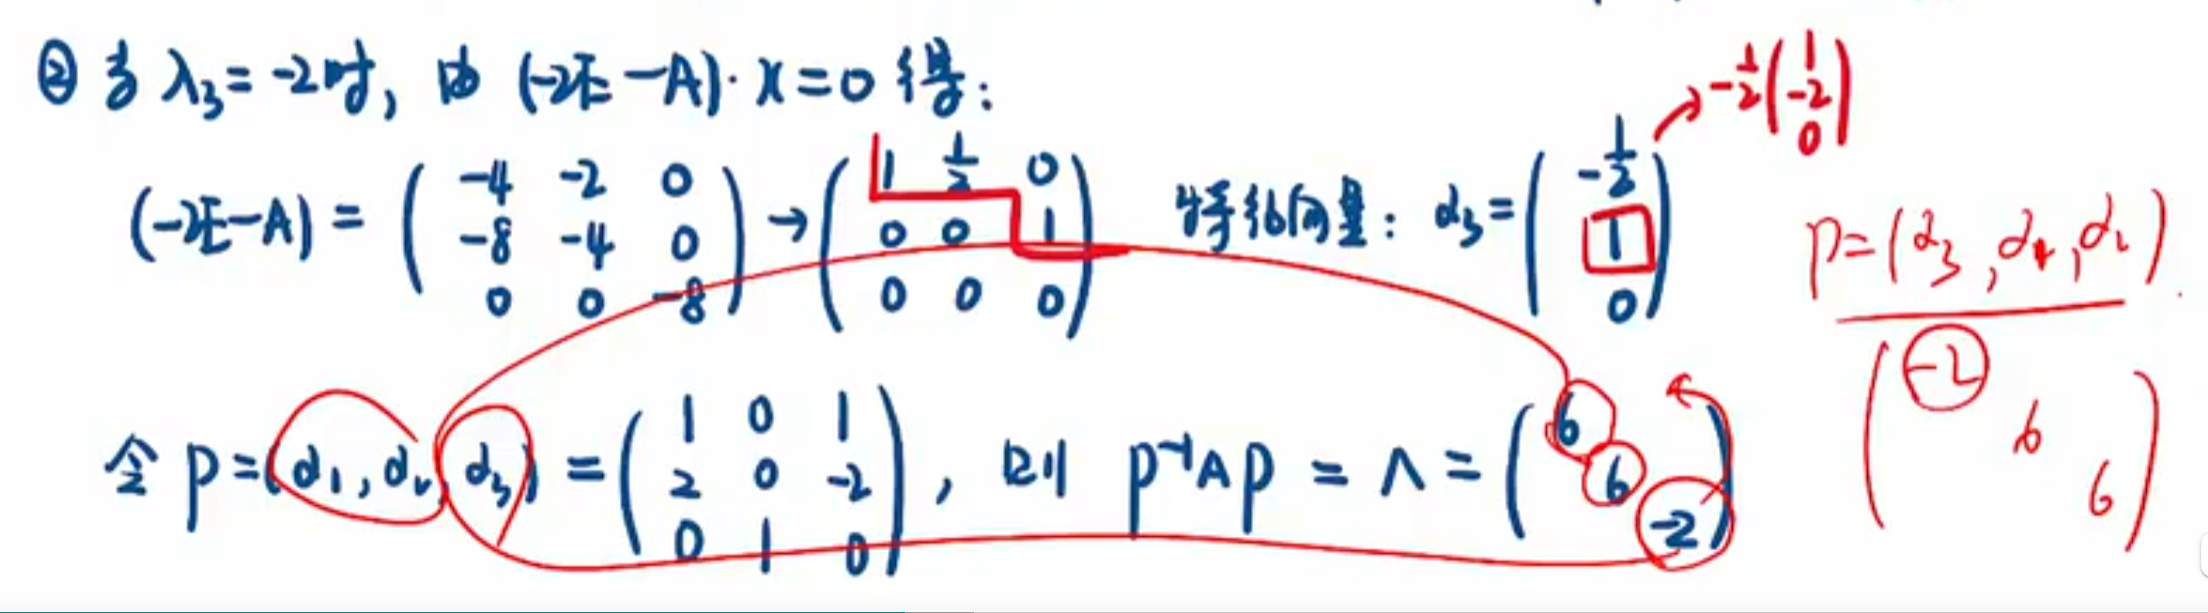 ② 当 λ₃=-2时, 由 (-2E-A)·x=0 得:
-½(1 -2 0)
(-2E-A) = (-4 -2 0 -8 -4 0 0 0 -8) → (1 ½ 0 0 0 1 0 0 0) 特征向量: α₃=(-½ 1 0)
P=(α₃,α₁,α₂).
(-2 6 6)
令 P=(α₁,α₂,α₃) = (1 0 1 2 0 -2 0 1 0), 则 P⁻¹AP = Λ = (6 6 -2)